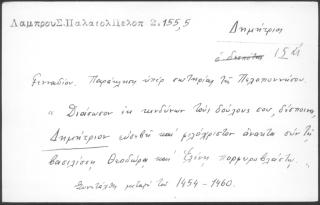 Λαμπρου Σ. Παλαιολ Πελοπ 2.155,5
Δημήτριος
ὁ δεσπότης
Γενναδίου. Παράκλησις ὑπὲρ σωτηρίας τῆς Πελοποννήσου.
« Διάσωσον ἐκ κινδύνων τοὺς δούλους σου, δέσποινα,
Δημήτριον εὐσεβῆ καὶ φιλόχριστον ἄνακτα σὺν τῇ
βασιλίσσῃ Θεοδώρᾳ καὶ Ἑλένῃ πορφυροβλάστῳ. »
Συνετάχθη μεταξὺ τῶν 1454 - 1460.